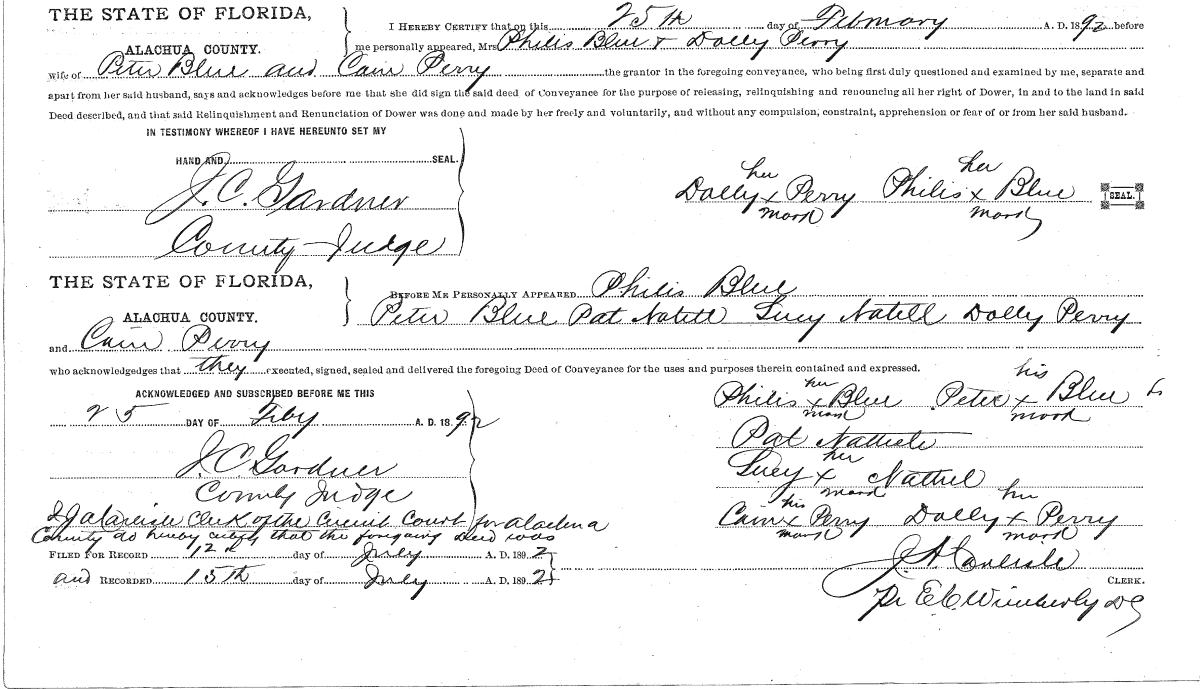 THE STATE OF FLORIDA,
ALACHUA COUNTY.
I HEREBY CERTIFY that on this 25th day of February A. D. 1892 before
me personally appeared, Mrs Philis Blue & Dolly Perry
wife of Peter Blue and Cain Perry the grantor in the foregoing conveyance, who being first duly questioned and examined by me, separate and
apart from her said husband, says and acknowledges before me that she did sign the said deed of Conveyance for the purpose of releasing, relinquishing and renouncing all her right of Dower, in and to the land in said
Deed described, and that said Relinquishment and Renunciation of Dower was done and made by her freely and voluntarily, and without any compulsion, constraint, apprehension or fear of or from her said husband.
IN TESTIMONY WHEREOF I HAVE HEREUNTO SET MY
HAND AND SEAL.
J. C. Gardner
County Judge
her her
Dolly x Perry Philis x Blue SEAL.
mark mark
THE STATE OF FLORIDA,
ALACHUA COUNTY.
BEFORE ME PERSONALLY APPEARED Philis Blue
Peter Blue Pat Natell Lucy Natell Dolly Perry
and Cain Perry
who acknowledgedges that they executed, signed, sealed and delivered the foregoing Deed of Conveyance for the uses and purposes therein contained and expressed.
ACKNOWLEDGED AND SUBSCRIBED BEFORE ME THIS
25 DAY OF Feby A. D. 1892
J. C. Gardner
County Judge
her his
Philis x Blue Peter x Blue
mark mark
Pat
her
Lucy x Nattiel
mark
his her
Cain x Perry Dolly x Perry
mark mark
I J A Carlisle Clerk of the Circuit Court for Alachua
County do hereby certify that the foregoing deed was
FILED FOR RECORD 12th day of July A. D. 1892
and RECORDED 15th day of July A. D. 1892
J A Carlisle
CLERK.
Pr E. C. Wimberly DC